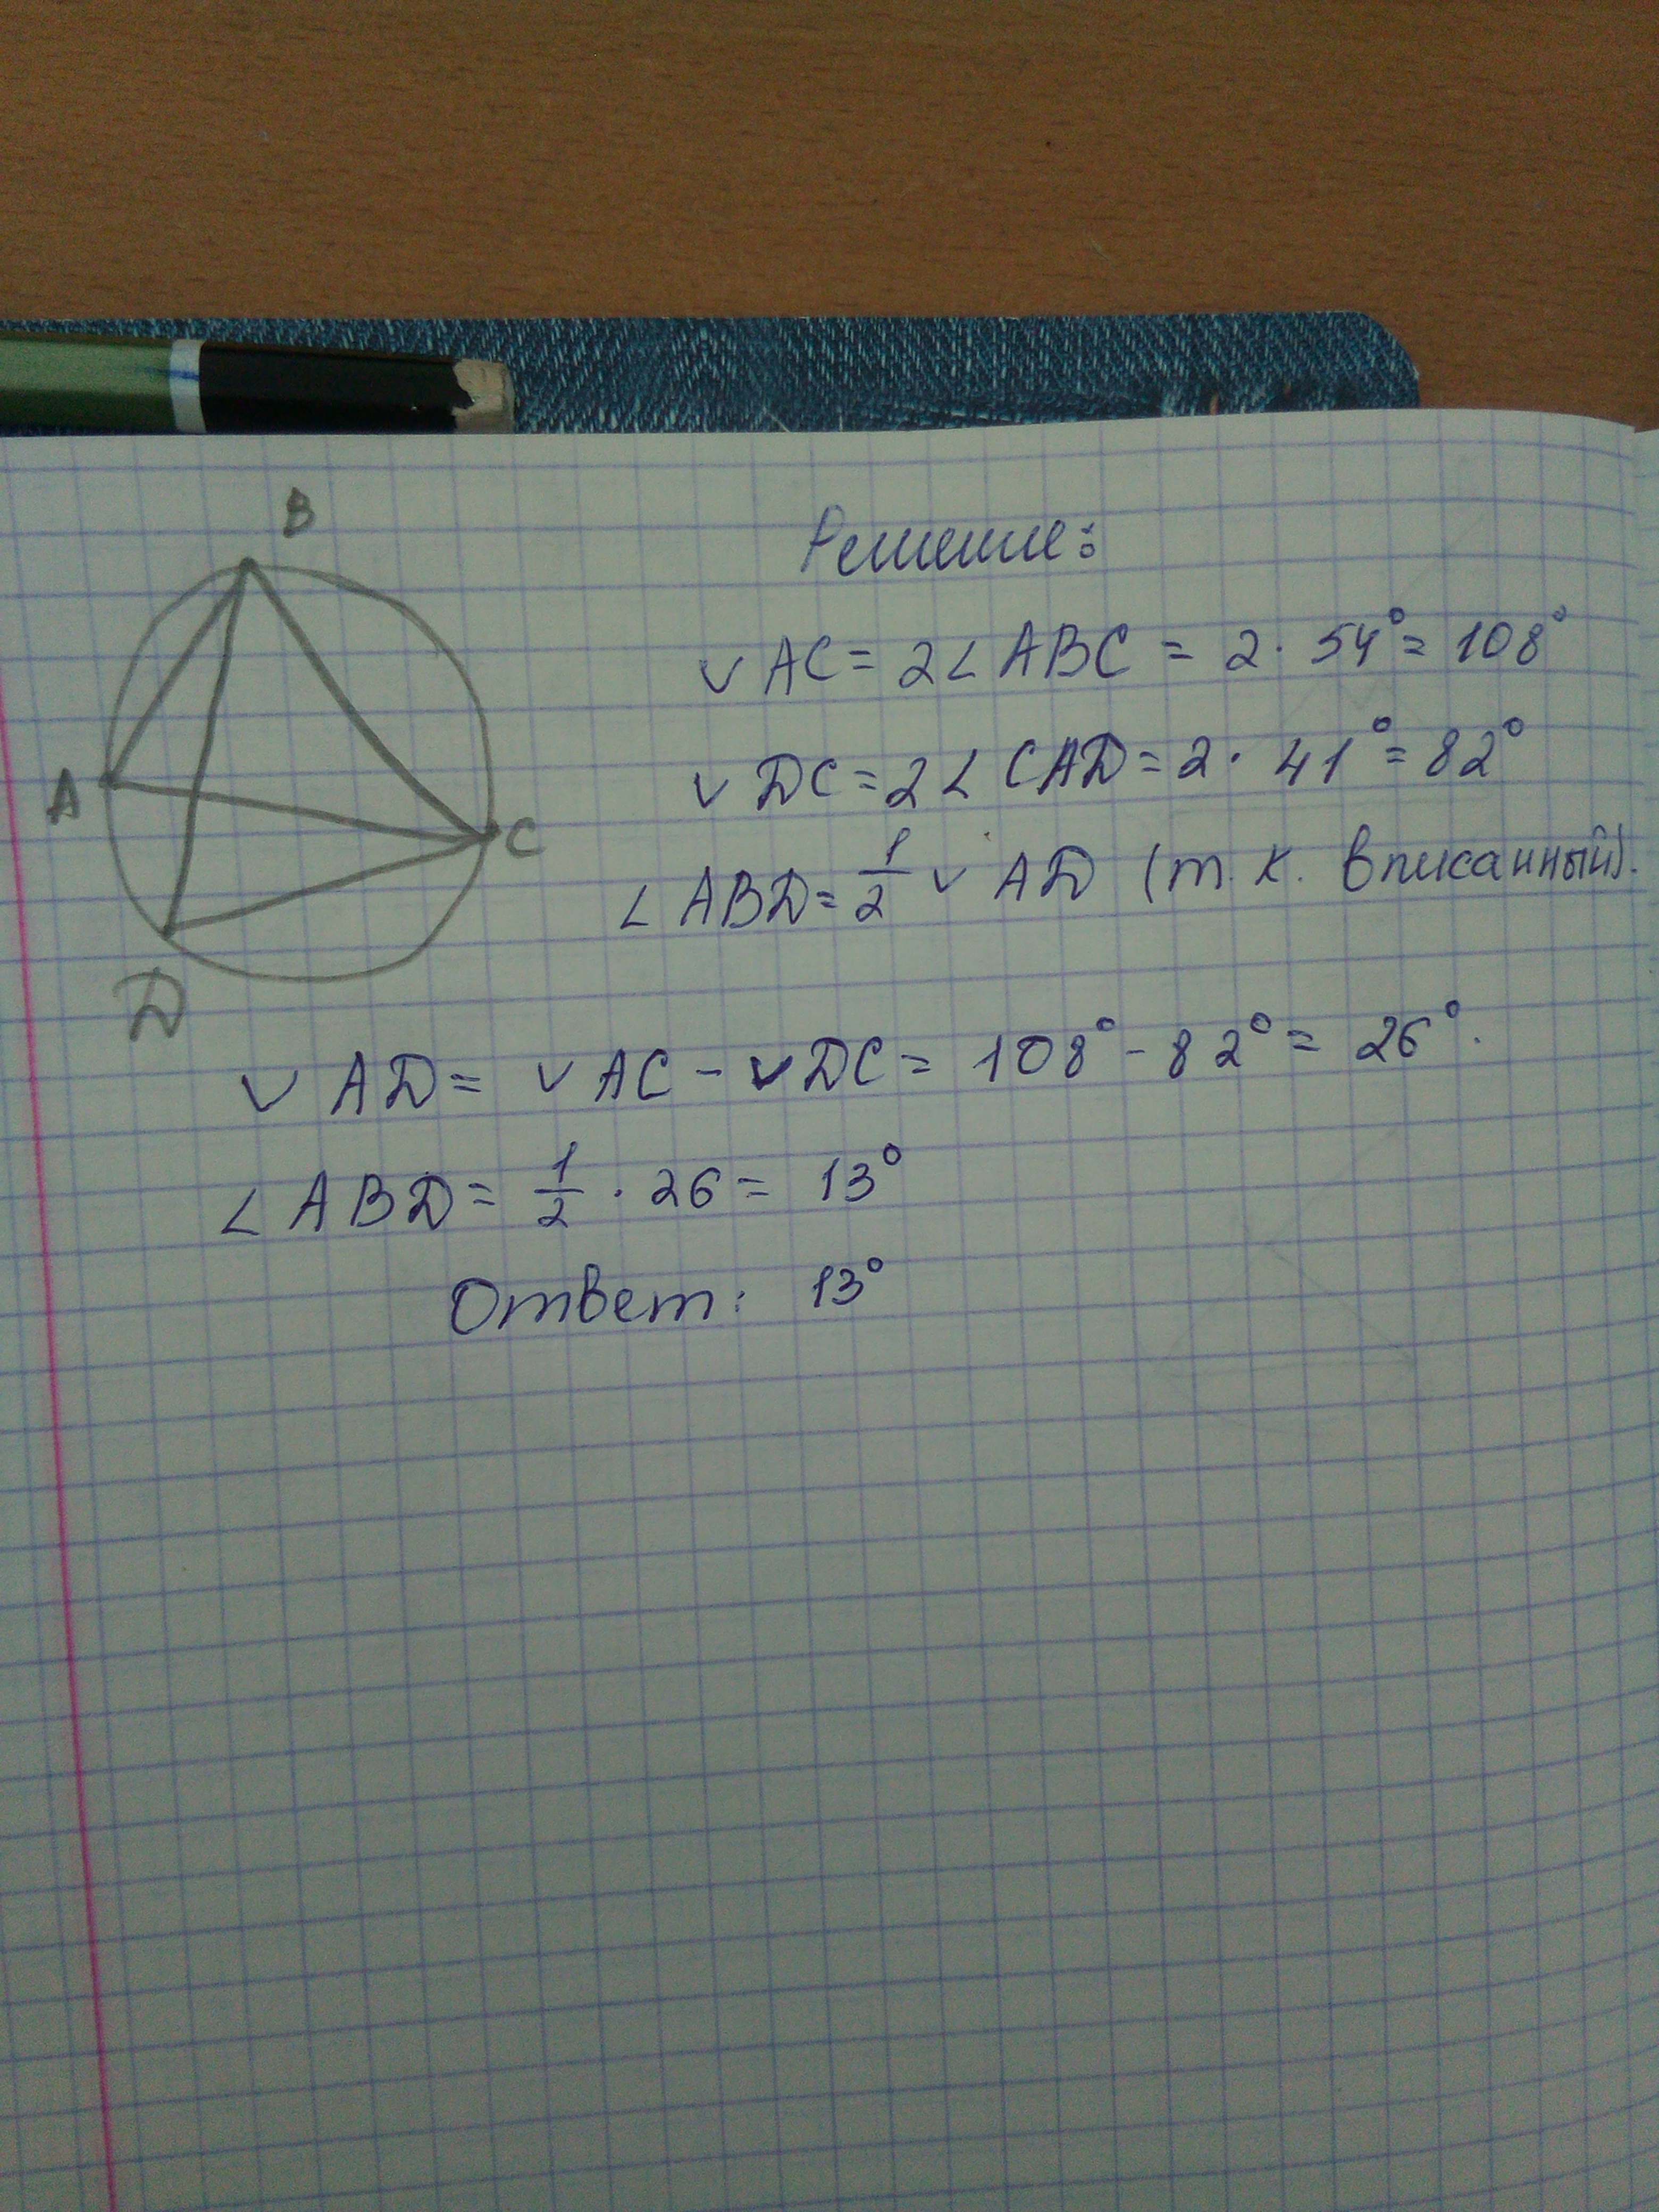 B
A
C
D
Решение:
◡ AC = 2∠ ABC = 2 · 54° = 108°
◡ DC = 2∠ CAD = 2 · 41° = 82°
∠ ABD = 1/2 ◡ AD (т. к. вписанный).
◡ AD = ◡ AC - ◡ DC = 108° - 82° = 26°.
∠ ABD = 1/2 · 26 = 13°
Ответ: 13°